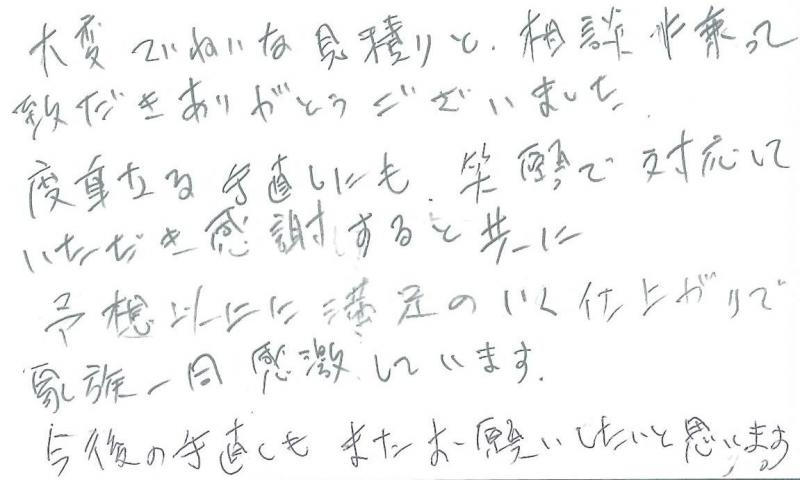 大変ていねいな見積りと、相談に乗って
頂だきありがとうございました。
度重なる手直しにも、笑顔で対応して
いただき感謝すると共に
予想以上に満足のいく仕上がりで
家族一同感激しています。
今後の手直しも またお願いしたいと思います。